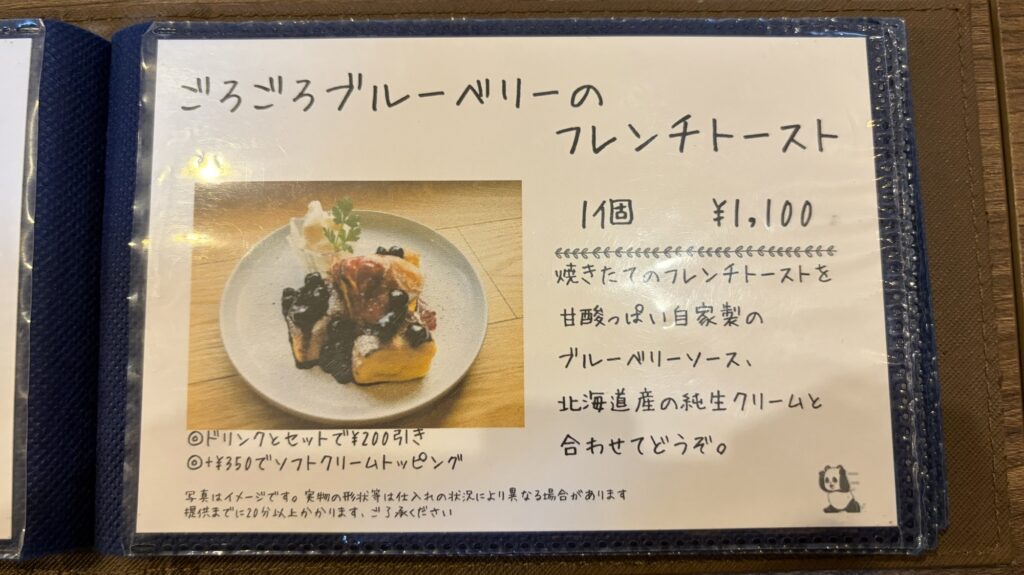 ごろごろブルーベリーの
フレンチトースト
1個 ¥1,100
焼きたてのフレンチトーストを
甘酸っぱい自家製の
ブルーベリーソース、
北海道産の純生クリームと
合わせてどうぞ。
◎ドリンクとセットで¥200引き
◎+¥350でソフトクリームトッピング
写真はイメージです。実物の形状等は仕入れの状況により異なる場合があります
提供までに20分以上かかります、ご了承ください